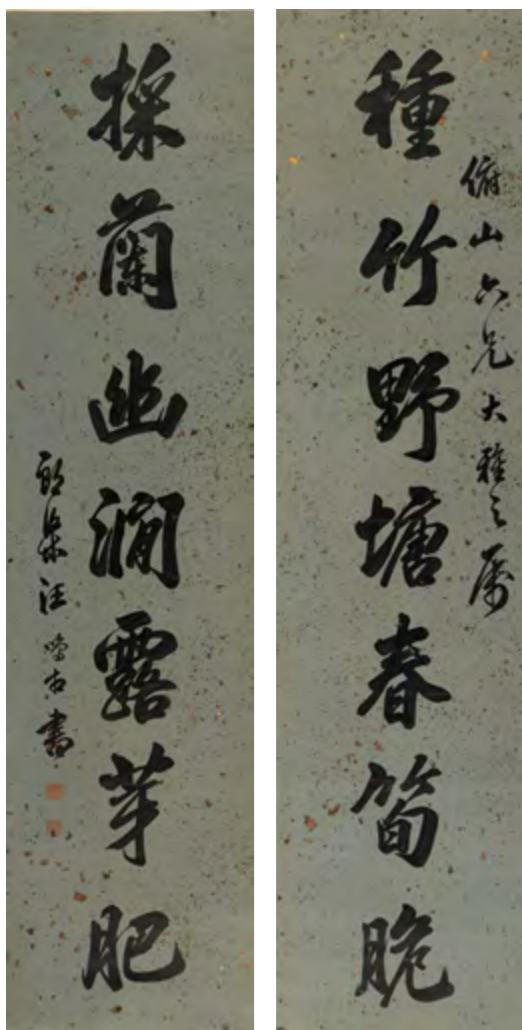 種竹野塘春筍脆
俯山六兄大雅之属
採蘭幽澗露芽肥
郎渠汪鳴相書